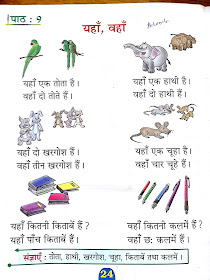 पाठ : 9
यहाँ, वहाँ
यहाँ एक तोता है।
वहाँ दो तोते हैं।
यहाँ एक हाथी है।
वहाँ दो हाथी हैं।
यहाँ दो खरगोश हैं।
वहाँ तीन खरगोश हैं।
यहाँ एक चूहा है।
वहाँ चार चूहे हैं।
यहाँ कितनी किताबें हैं ?
यहाँ पाँच किताबें हैं।
वहाँ कितनी कलमें हैं ?
वहाँ छः कलमें हैं।
संज्ञाएँ : तोता, हाथी, खरगोश, चूहा, किताबें तथा कलमें।
24